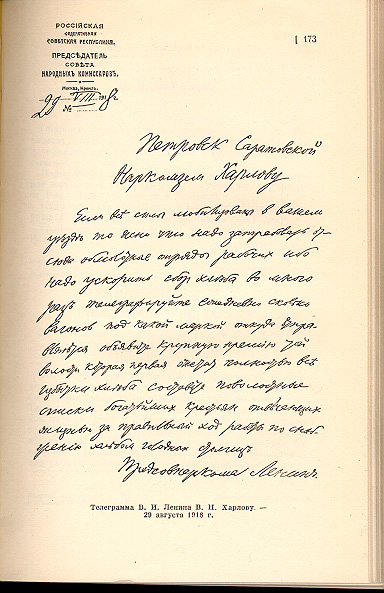 РОССІЙСКАЯ
ФЕДЕРАТИВНАЯ
СОВѢТСКАЯ РЕСПУБЛИКА.
ПРЕДСѢДАТЕЛЬ
СОВѢТА
НАРОДНЫХЪ КОМИССАРОВЪ.
Москва, Кремль.
29/VIII 1918 г.
№
[ 173
Петровск Саратовской
Наркомзем Харлову
Если все силы мобилизованы в вашем
уезде то ясно что надо затребовать
отряды рабочих ибо
надо ускорить сбор хлеба во много
раз телеграфируйте ежедневно сколько
вагонов под какой меркой откуда
объявите крупную премию той
волости которая первая полностью все
хлеба составьте поволостные
списки богатейших крестьян отвечающих
жизнью за правильный ход работы по
хлебом голодных столиц
Предсовнаркома Ленин.
Телеграмма В. И. Ленина В. Н. Харлову. —
29 августа 1918 г.